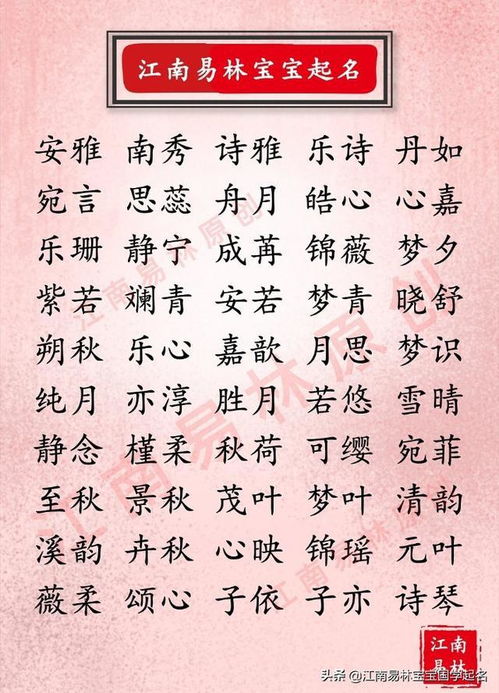 江南易林宝宝起名
安雅 南秀 诗雅 乐诗 丹如
宛言 思蕊 舟月 皓心 心嘉
乐珊 静宁 成苒 锦薇 梦夕
紫若 斓青 安若 梦青 晓舒
朔秋 乐心 嘉歆 月思 梦识
纯月 亦淳 胜月 若悠 雪晴
静念 槿柔 秋荷 可缨 宛菲
至秋 景秋 茂叶 梦叶 清韵
溪韵 卉秋 心映 锦瑶 元叶
薇柔 颂心 子依 子亦 诗琴
江南易林原创
江南易林原创
江南易林原创
江南
易林
头条 @江南易林宝宝国学起名